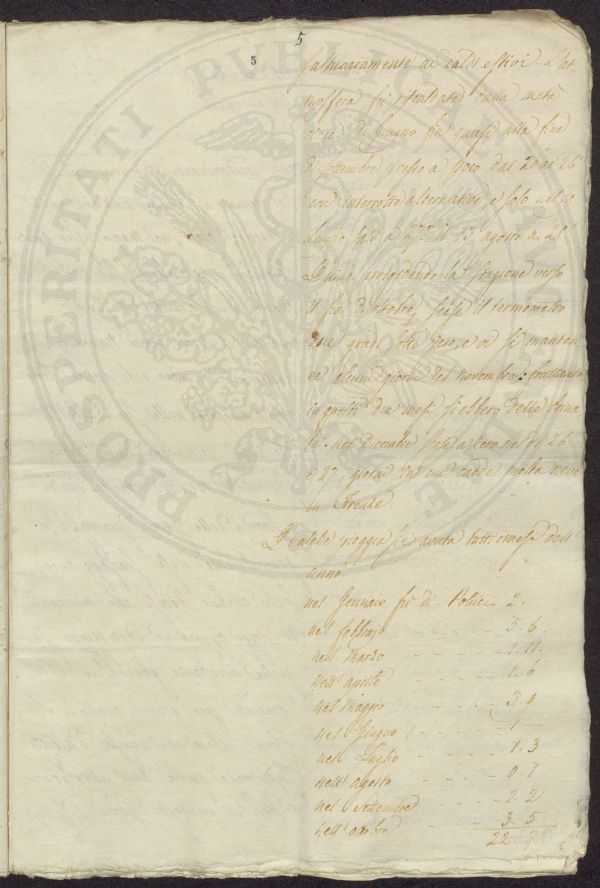 5
5
ai calori estivi. L'at
mosfera fù riscaldata dalla metà
di Giugno fin quasi alla fine
di settembre presso a poco dai 20 ai 26
con interrotte alternative, e solo nel 10
Luglio salì a 27. il 13 agosto a 28.
Quindi irrigidendo la stagione verso
il fin d'ottobre, scese il termometro
gradi sotto, ove si manten
ne alcuni giorni del novembre: frattanto
in questi due mesi si ebbero delle brina
te. nel Decembre scese a zero nel dì 26
e 27, giorni in cui cadde molta neve
in Firenze
Qualche pioggia si è avuta tutti i mesi dell'
anno
nel Gennaio fù di Pollici 2.
nel febbraio 5. 6.
nell' Marzo 1. 11.
nell' aprile 1. 6
nel Maggio 3. 9
nel Giugno 1
nel Luglio 1. 3
nell' agosto 0. 1
nel Settembre 2 2
nell' ottobre 3. 5
22. 7
PROSPERITATI PUBLICAE